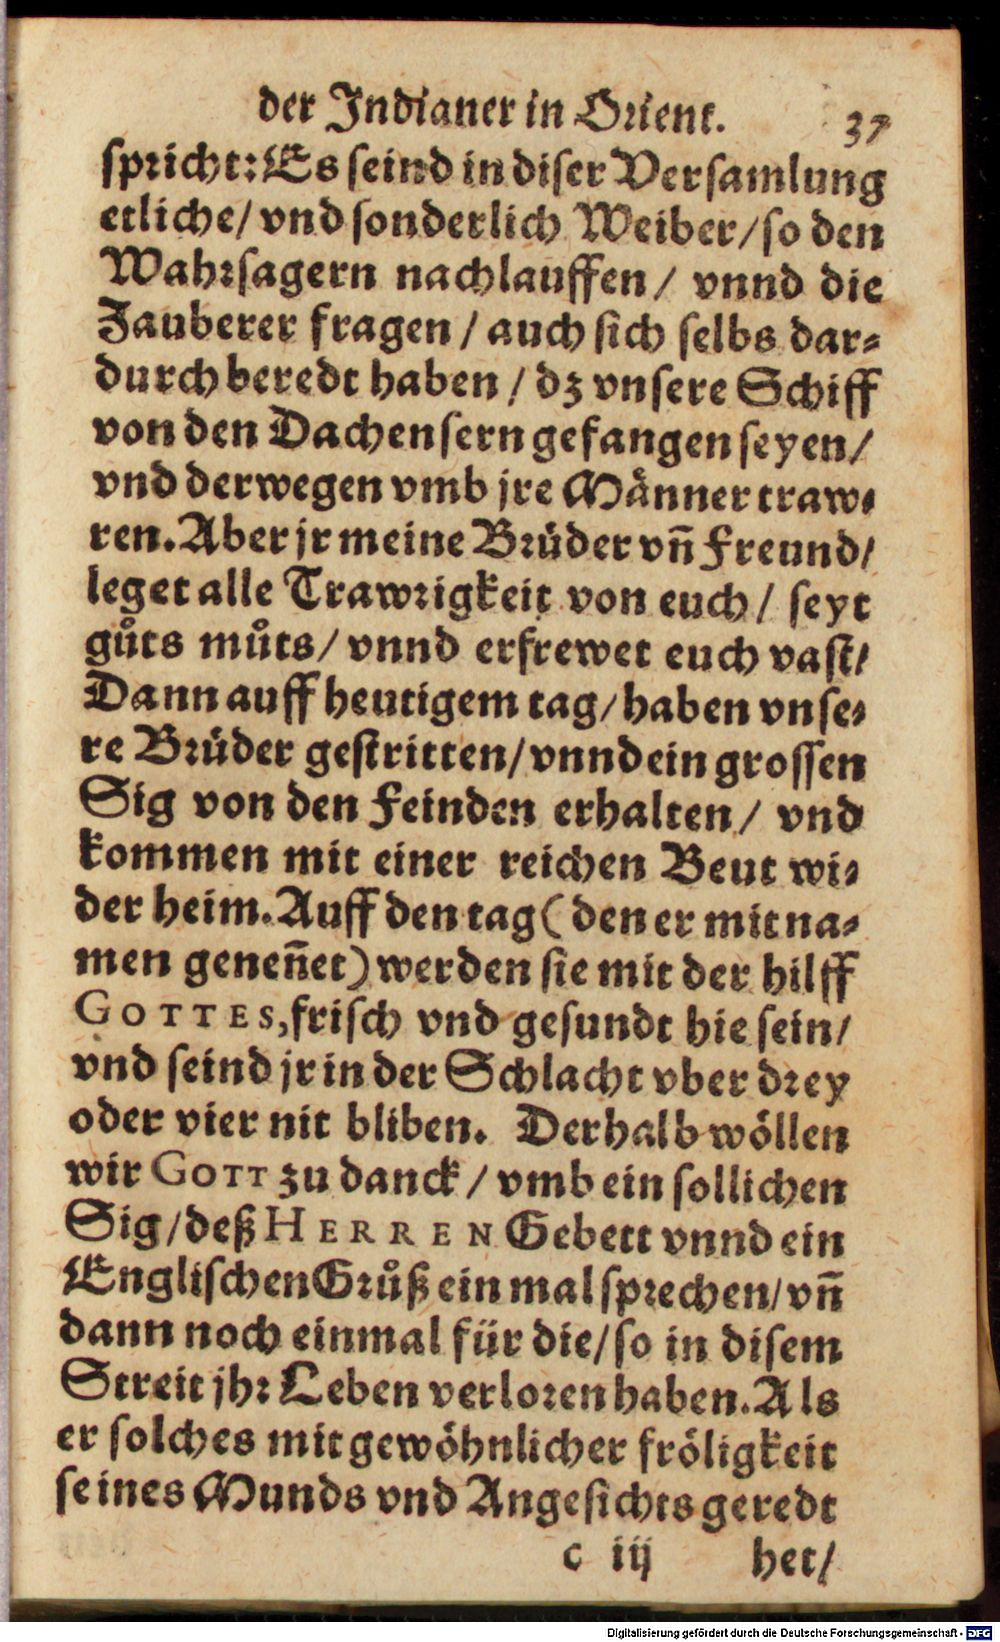 der Indianer in Orient. 37
spricht: Es seind in diser Versamlung
etliche/ vnd sonderlich Weiber/ so den
Wahrsagern nachlauffen/ vnnd die
Zauberer fragen / auch sich selbs dar-
durch beredt haben / dz vnsere Schiff
von den Dachensern gefangen seyen/
vnd derwegen vmb jre Männer traw-
ren. Aber jr meine Brüder vn̄ Freund/
leget alle Trawrigkeit von euch/ seyt
gůts můts/ vnnd erfrewet euch vast/
Dann auff heutigem tag/ haben vnse-
re Brüder gestritten/ vnnd ein grossen
Sig von den Feinden erhalten/ vnd
kommen mit einer reichen Beut wi-
der heim. Auff den tag ( den er mit na-
men genen̄et) werden sie mit der hilff
GOTTES, frisch vnd gesundt hie sein/
vnd seind jr in der Schlacht vber drey
oder vier nit bliben. Derhalb wöllen
wir GOTT zu danck / vmb ein sollichen
Sig/ deß HERREN Gebett vnnd ein
Englischen Grůß ein mal sprechen/ vn̄
dann noch einmal für die/ so in disem
Streit jhr Leben verloren haben. Als
er solches mit gewöhnlicher fröligkeit
seines Munds vnd Angesichts geredt
c iij het/
Digitalisierung gefördert durch die Deutsche Forschungsgemeinschaft - DFG